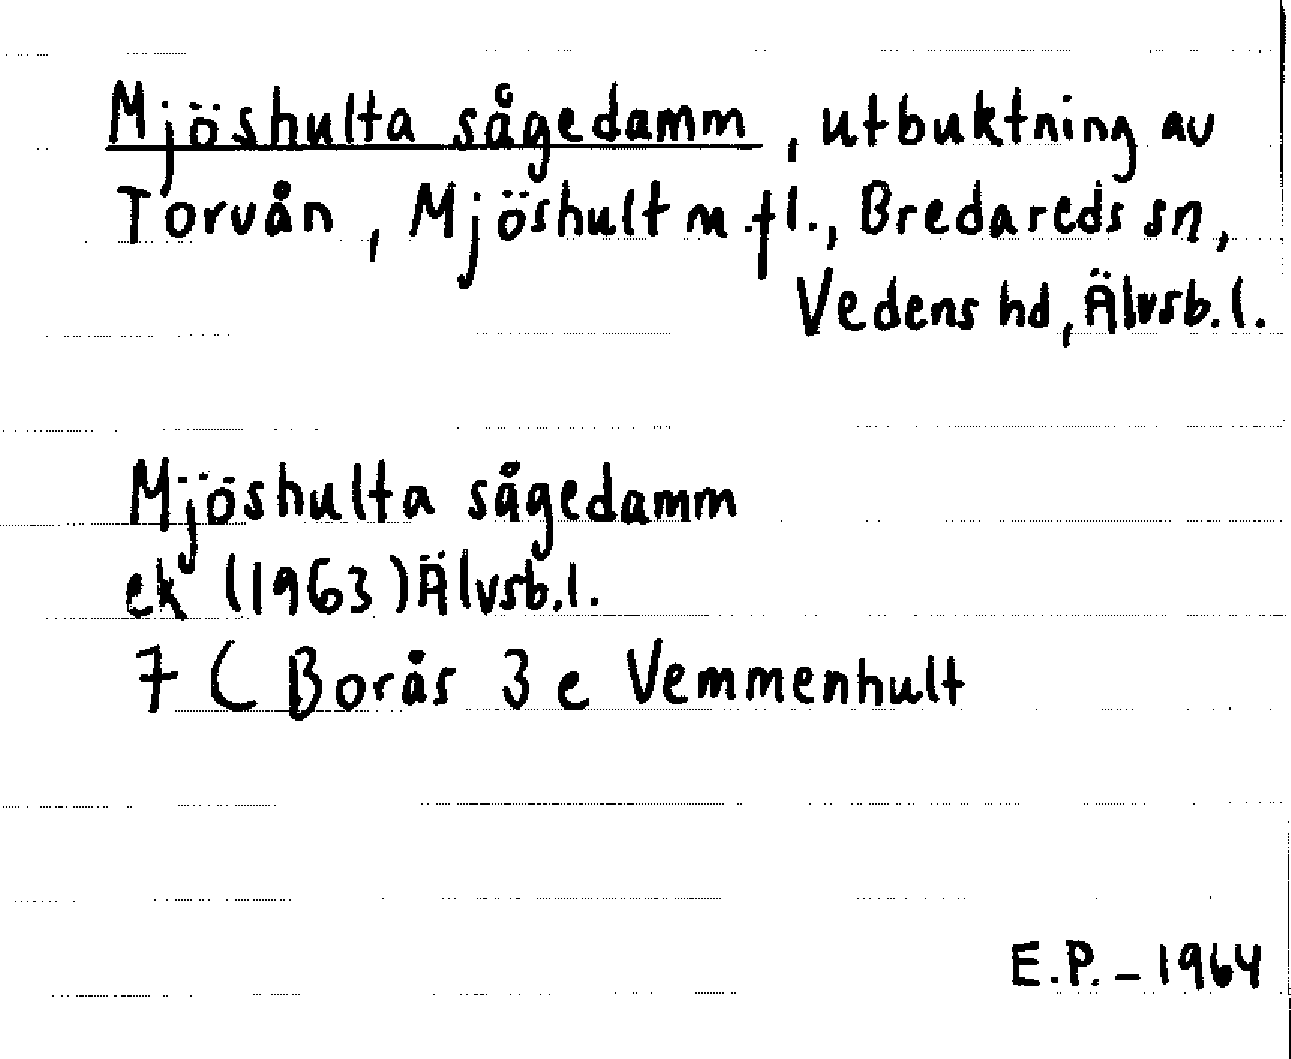 Mjöshulta sågedamm, utbuktning av
Torvån, Mjöshult m.fl., Bredareds sn,
Vedens hd, Älvsb.l.
Mjöshulta sågedamm
ek (1963) Älvsb.l.
7 C Borås 3 e Vemmenhult
E.P. - 1964